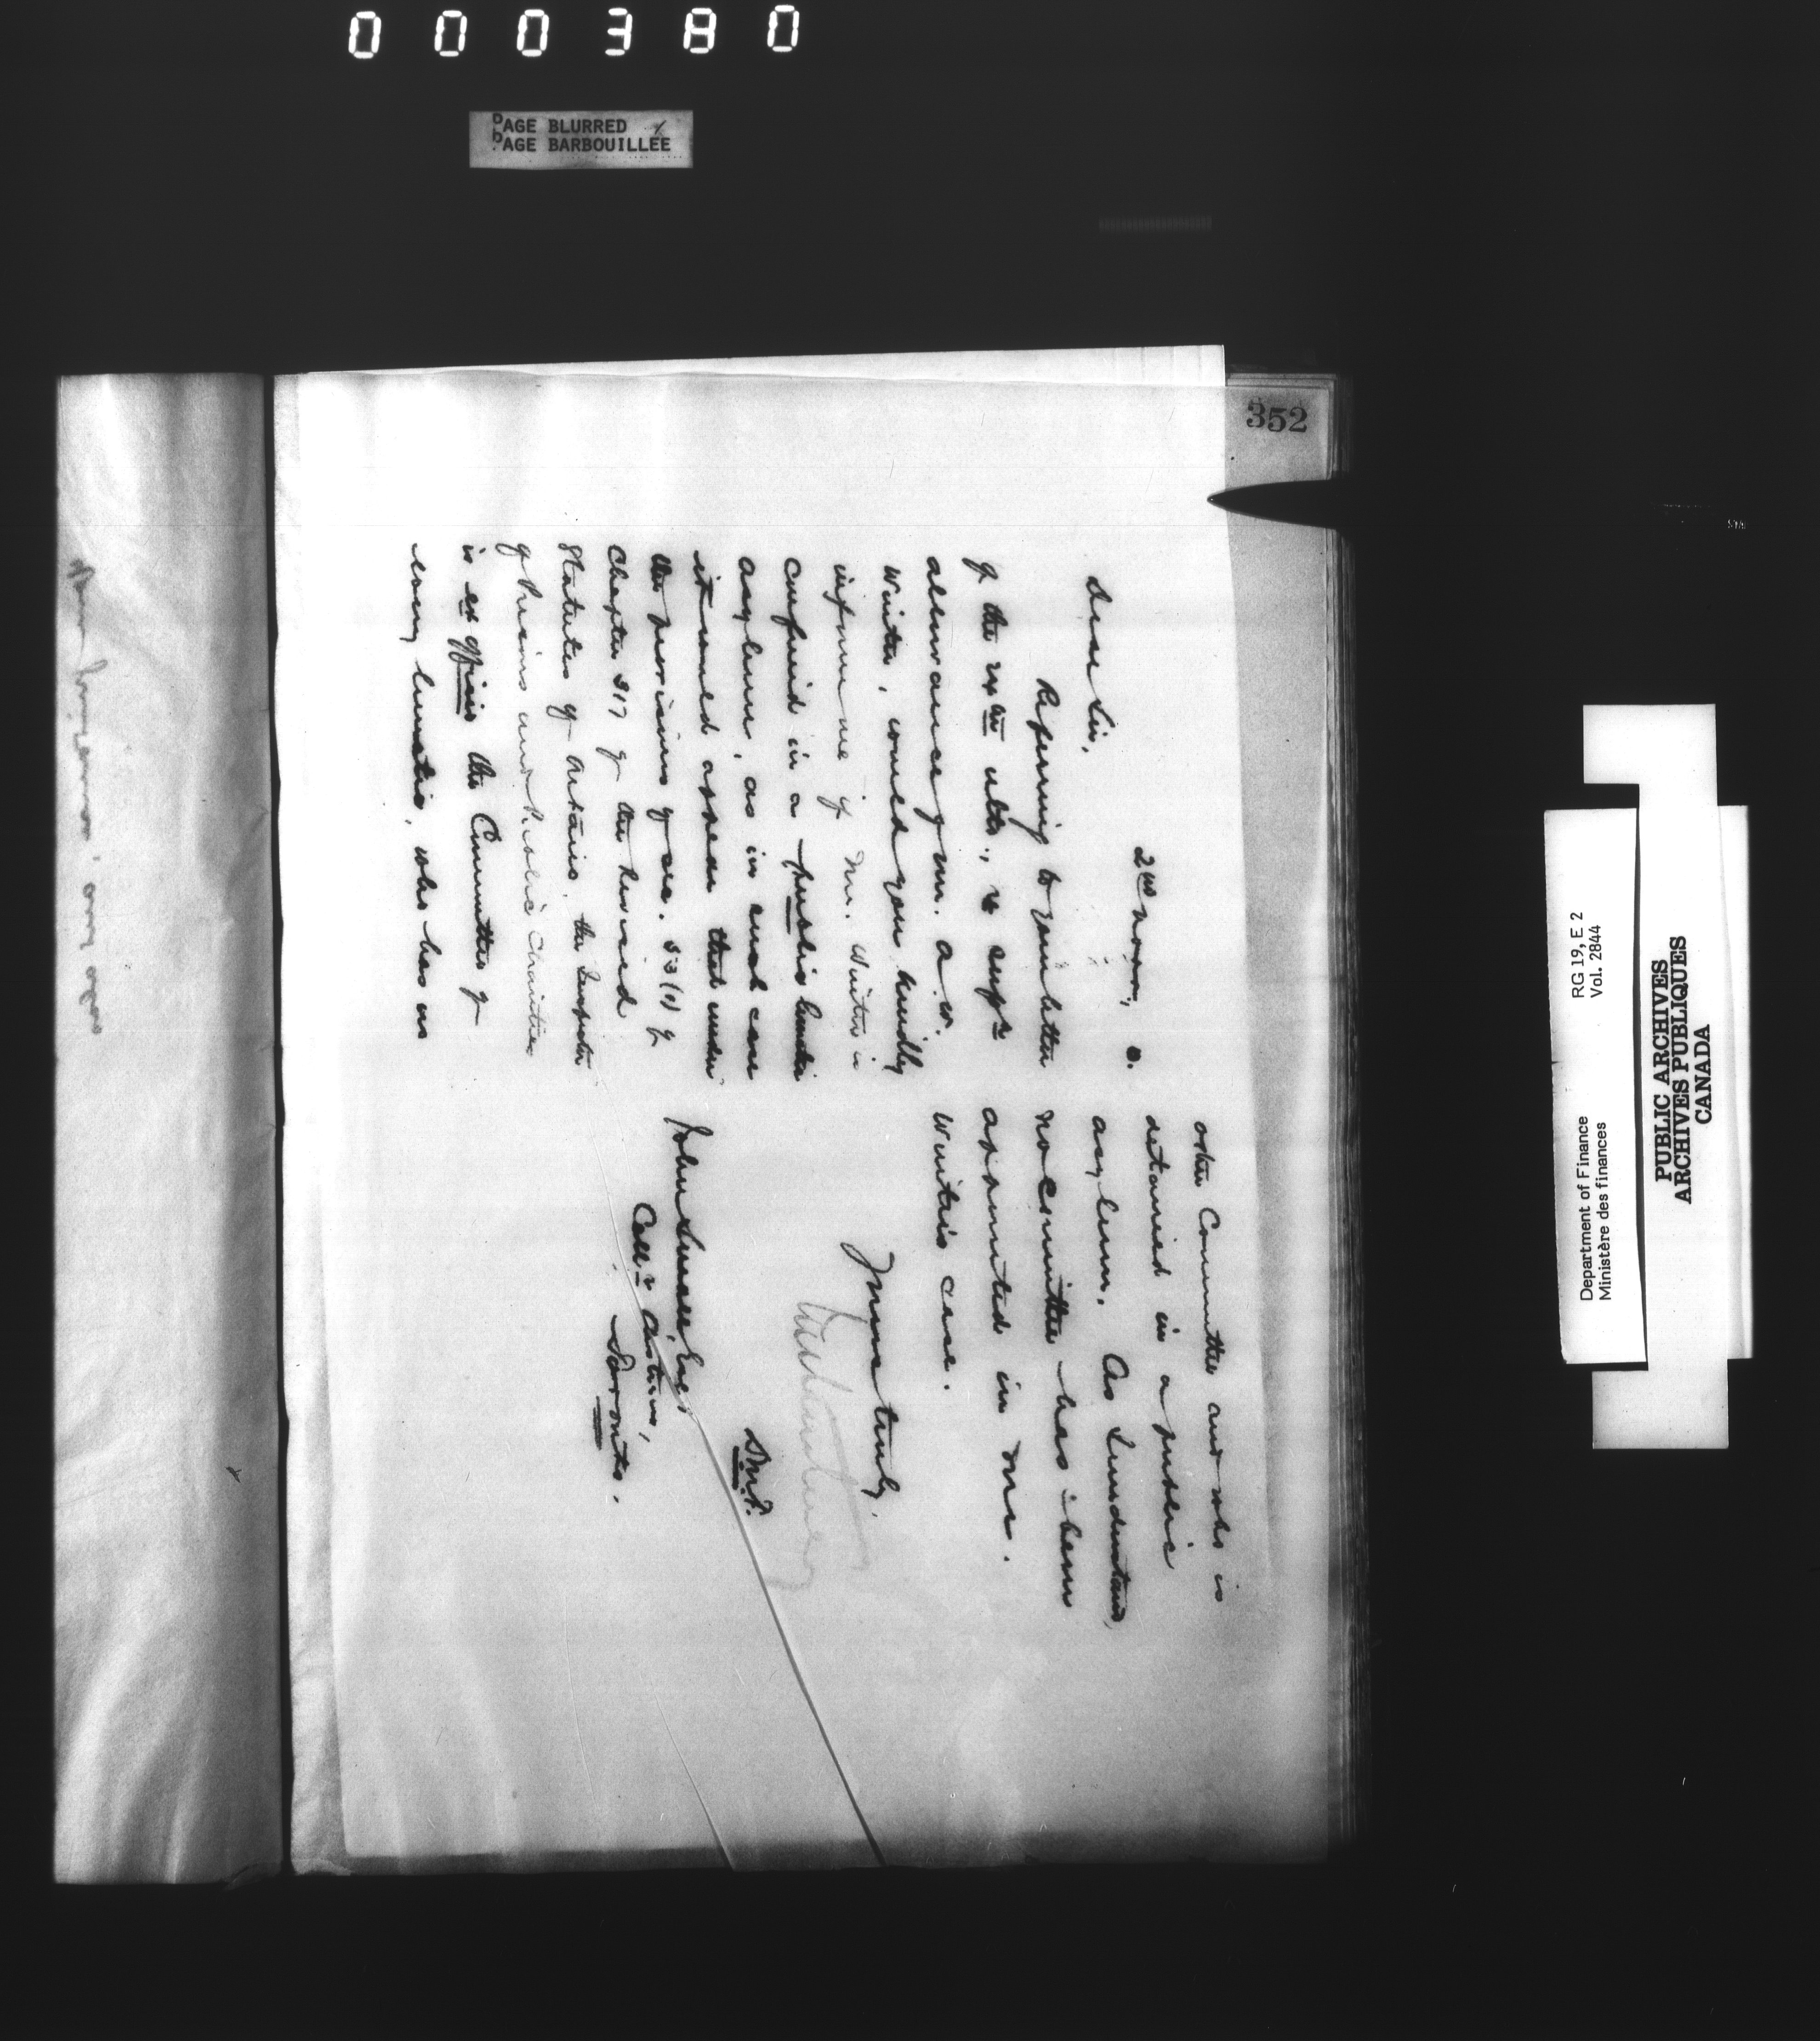 000380
PAGE BLURRED
PAGE BARBOUILLÉE
352
2nd Novr.,
Dear Sir,
Referring to your letter
of the ulto., re supn
allowance of Mr. A. W.
Winter, would you kindly
inform me if Mr. Winter is
confined in a public lunatic
asylum, as in such case
it would appear that under
the provisions of sec. 53(1) of
Chapter 317 of the Revised
Statutes of Ontario, the Inspector
of Prisons and Public Charities
is ex officio the Committee of
every lunatic, who has no
other Committee and who is
detained in a public
asylum. As I understand,
no committee has been
appointed in Mr.
Winter's case.
Yours truly,
D.M.F.
John Esqr
Collr Customs,
Toronto.
Department of Finance
Ministère des finances
RG 19, E 2
Vol. 2844
PUBLIC ARCHIVES
ARCHIVES PUBLIQUES
CANADA